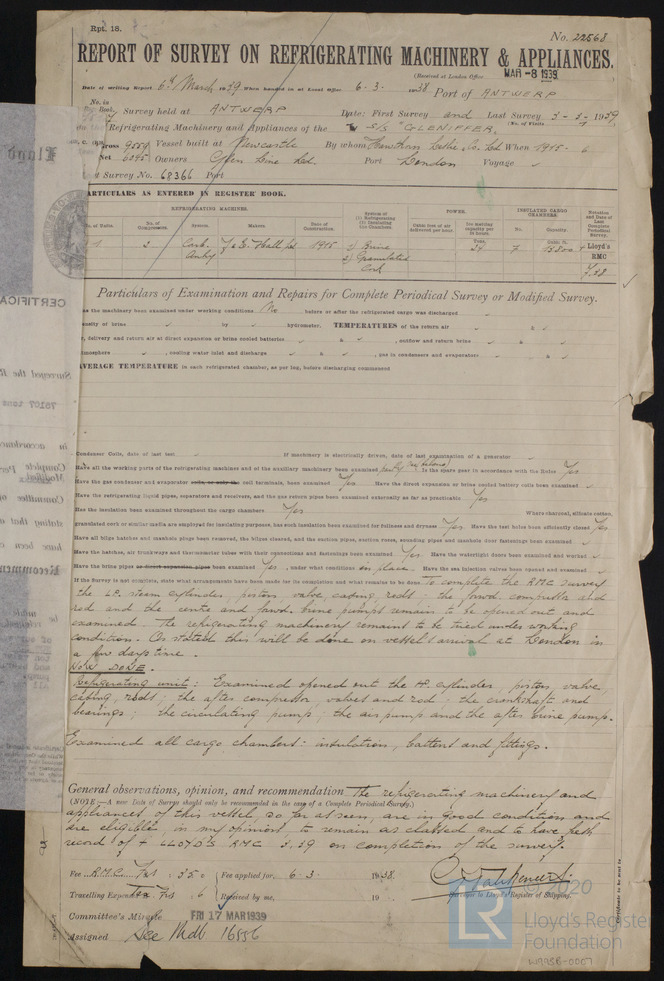 Rpt. 18.
No. 22568
REPORT OF SURVEY ON REFRIGERATING MACHINERY & APPLIANCES.
(Received at London Office MAR -8 1939
Date of writing Report 6th March 1939 When handed in at Local Office 6.3. 1938 Port of ANTWERP
No. in Reg. Book. Survey held at ANTWERP Date: First Survey and Last Survey 3-3-1939
Refrigerating Machinery and Appliances of the S/S "GLENIFFER. (No. of Visits
Gross 9559 Vessel built at Newcastle By whom Hawthorn Leslie & Co. Ld When 1915-6
Net 6095 Owners Glen Line Ltd. Port London Voyage
Survey No. 68366 Port
PARTICULARS AS ENTERED IN REGISTER BOOK.
REFRIGERATING MACHINES. System of (1) Refrigerating (2) Insulating Cargo Chambers. POWER. INSULATED CARGO CHAMBERS. Notation and Date of Last Complete Periodical Survey.
No. of Units. No. of Compressors. System. Makers. Date of Construction. Cubic feet of air delivered per hour. Ice making capacity per 24 hours. No. Capacity.
Tons. Cubic ft.
1 2 Carb. Anhy J & E Hall Ld 1915 1) Brine 2) Granulated Cork 24 7 + Lloyd's RMC 7,38
Particulars of Examination and Repairs for Complete Periodical Survey or Modified Survey.
Has the machinery been examined under working conditions No before or after the refrigerated cargo was discharged
density of brine by hydrometer. TEMPERATURES of the return air &
delivery and return air at direct expansion or brine cooled batteries & , outflow and return brine &
atmosphere , cooling water inlet and discharge & , gas in condensers and evaporators &
AVERAGE TEMPERATURE in each refrigerated chamber, as per log, before discharging commenced
Condenser Coils, date of last test If machinery is electrically driven, date of last examination of a generator
Have all the working parts of the refrigerating machines and of the auxiliary machinery been examined partly (see below) Is the spare gear in accordance with the Rules Yes
Have the gas condenser and evaporator coils, or only the coil terminals, been examined Yes Have the direct expansion or brine cooled battery coils been examined
Have the refrigerating liquid pipes, separators and receivers, and the gas return pipes been examined externally as far as practicable Yes
Has the insulation been examined throughout the cargo chambers Yes Where charcoal, silicate cotton,
granulated cork or similar media are employed for insulating purposes, has such insulation been examined for fullness and dryness Yes Have the test holes been efficiently closed Yes
Have all bilge hatches and manhole plugs been removed, the bilges cleaned, and the suction pipes, suction roses, sounding pipes and manhole door fastenings been examined
Have the hatches, air trunkways and thermometer tubes with their connections and fastenings been examined Yes Have the watertight doors been examined and worked
Have the brine pipes or direct expansion pipes been examined Yes , under what conditions in place Have the sea injection valves been opened and examined
If the Survey is not complete, state what arrangements have been made for its completion and what remains to be done. To complete the RMC survey
the L.P. steam cylinder, piston, valve, casing, rods; the forwd. compressor and
rod and the centre and forwd. brine pumps remain to be opened out and
examined. The refrigerating machinery remains to be tried under working
condition. As stated this will be done on vessel's arrival at London in
a few days time.
NOW DONE.
Refrigerating unit: Examined opened out the H.P. cylinder, piston, valve,
casing, rods; the after compressor valves and rod; the crankshaft and
bearings; the circulating pump; the air pump and the after brine pump.
Examined all cargo chambers: insulation, battens and fittings.
General observations, opinion, and recommendation The refrigerating machinery and
(NOTE:—A new Date of Survey should only be recommended in the case of a Complete Periodical Survey.)
appliances of this vessel, so far as seen, are in good condition and
are eligible, in my opinion, to remain as classed and to have fresh
record of + LLOYD'S RMC 3,39 on completion of the survey.
Fee R.M.C. Frs 350 Fee applied for 6-3- 1938.
Travelling Expenses Frs 6 Received by me, 19
Surveyor to Lloyd's Register of Shipping.
Committee's Minute FRI 17 MAR 1939
Assigned See Mdb 16556
Certificate to be sent to
© 2020
LR
Lloyd's Register
Foundation
W995B-0007